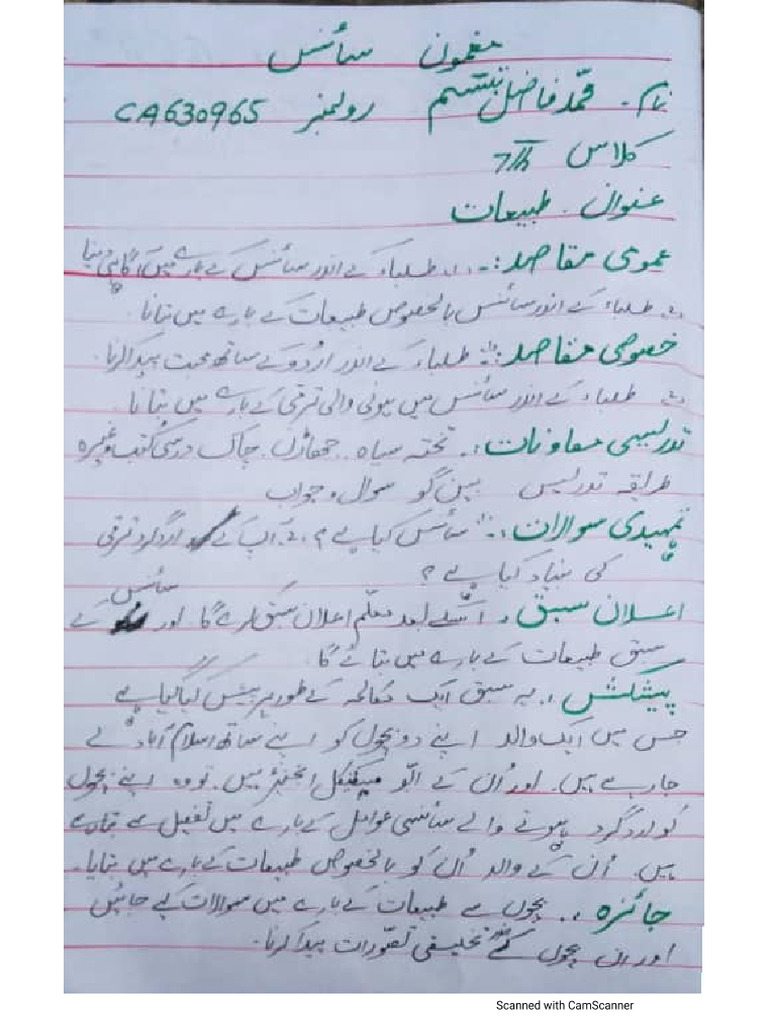 مضمون سائنس
نام۔ محمد فاضل تبسم رولنمبر CA630965
کلاس 7th
عنوان۔ طبیعات
عمومی مقاصد:۔ (1) طلباء کے اندر سائنس کے بارے میں آگاہی دینا
(2) طلباء کے اندر سائنس بالخصوص طبیعات کے بارے میں بتانا۔
خصوصی مقاصد:۔ طلباء کے اندر اردو کے ساتھ محبت پیدا کرنا۔
(2) طلباء کے اندر سائنس میں ہونی والی ترقی کے بارے میں بتانا۔
تدریسی معاونات:۔ تختہ سیاہ۔ جھاڑن۔ چاک درسی کتب وغیرہ
طریقہ تدریس بین گو سوال و جواب
تمہیدی سوالات:۔ سائنس کیا ہے؟ 2۔ آپ کے اردگرد ترقی
کی بنیاد کیا ہے؟
اعلان سبق۔ اسکے بعد معلم اعلان سبق کرے گا اور سائنس کے
سبق طبیعات کے بارے میں بتائے گا
پیشکش۔ یہ سبق ایک مکالمہ کے طور پر پیش کیا گیا ہے
جس میں ایک والد اپنے دو بچوں کو اپنے ساتھ اسلام آباد لے
جا رہے ہیں۔ اور اُن کے ابّو میکنیکل انجنئیر ہیں۔ تو وہ اپنے بچوں
کو اردگرد ہونے والے سائنسی عوامل کے بارے میں تفصیل سے بتا رہے
ہیں۔ اُن کے والد اُن کو بالخصوص طبیعات کے بارے میں بتایا۔
جائزہ۔ بچوں سے طبیعات کے بارے میں سوالات کیے جائیں
اور ان بچوں کے تخلیقی تصّورات پیدا کرنا۔
Scanned with CamScanner